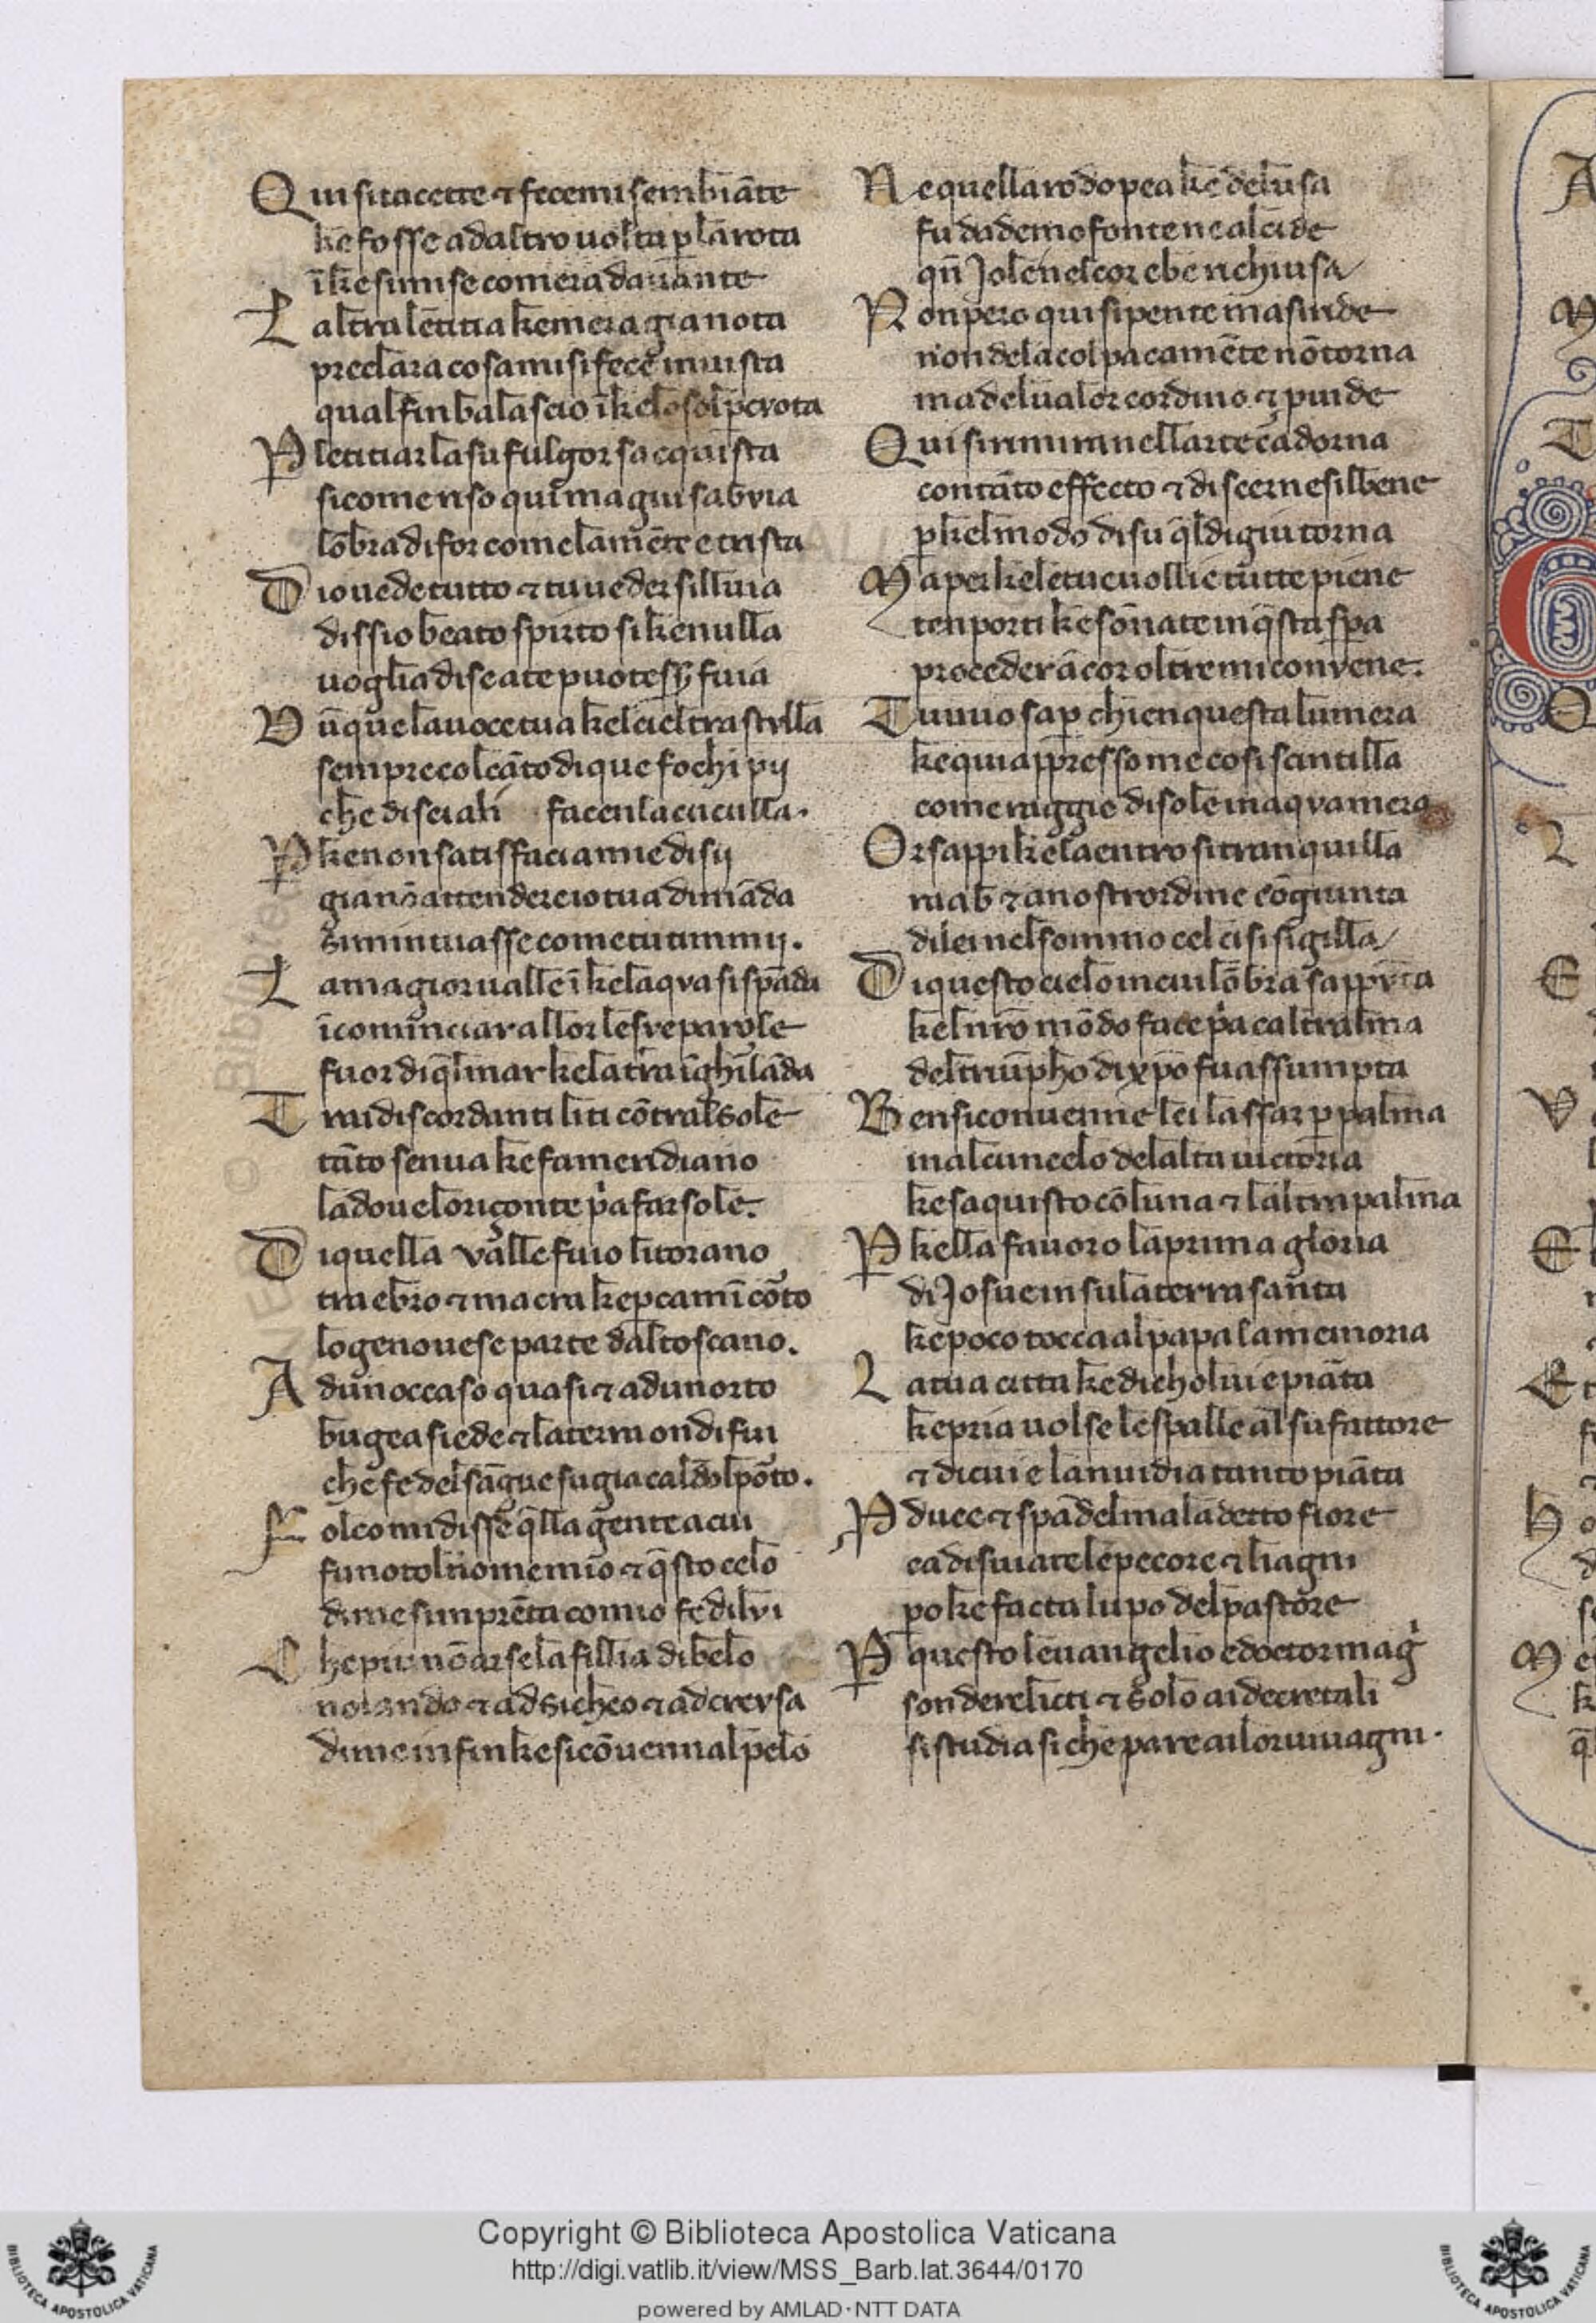 Qui si tacette ⁊ fecemi sembiāte
ke fosse ad altro uolta p la rota
ī ke si mise comera dauante
L altra letitia ke mera gia nota
preclara cosa mi si fece in uista
qual fin balascio ī ke lo sol percota
P letitiar la su fulgor sacquista
si come riso qui ma giu sabuia
lōbra di for come la mēte e trista
D io uede tutto ⁊ tu ueder silluia
dissio beato spirto si ke nulla
uoglia di se a te puotessẏ fuia
D ūque la uoce tua kel ciel trastylla
sempre col cāto di que fochi pij
che di sei ali facen la cuculla.
P ke non satisfaci a mie disij
gia nō attenderei io tua dimāda
simintuasse come tu timmij.
L a magior ualle ī ke laqva si spāda
īcominciar allor le sve parole
fuor di q̄l mar ke la tr̄a īghilāda
T ra i discordanti liti cōtral sole
tāto senua ke fa meridiano
la doue loriçonte pͥa far sole.
D i quella valle fuio litorano
tra ebro ⁊ macra ke p camī cōto
lo genouese parte dal toscano.
A dun occaso quasi ⁊ adun orto
bugea siede ⁊ la terra ondi fui
che fe del sāgue su gia caldo l pōto.
F olco mi disse q̄lla gente a cui
fu noto l nome mio ⁊ q̄sto celo
di me simprēta comio fe di lvi
C he piu nō arse la fillia di belo
noiando ⁊ ad sicheo ⁊ ad crevsa
di me infin ke si cōuenna l pelo
N e quella rodopea ke delusa
fu da demofonte ne alcide
qn̄ Jole nel cor ebe richiusa
N on pero qui si pente ma si ride
non dela colpa ca mēte nō torna
ma del ualor cordino ⁊ puide
Q ui si rimira nellarte cadorna
con tāto effecto ⁊ discernesi l bene
p kel modo di su q̄l di giu torna
M a per ke le tue uollie tutte piene
ten porti ke son nate in q̄sta spa
proceder ācor oltre mi convene.
T u uuo sap chi en questa lumera
ke qui appresso me cosi scintilla
come raggie di sole in aqva mera
O r sappi ke la entro si tranquilla
raab ⁊ a nostrordine cōgiunta
di lei nel sommo cel ci si sigilla
D i questo cielo in cui lōbra sappvnta
kel nr̄o mōdo face pͥa caltralma
del triūpho di xp̄o fu assumpta
B en si conuenne lei lassar p palma
in alcun celo del alta uictoria
ke saquisto cō luna ⁊ laltra palma
P kella favoro la prima gloria
di Josue in su la terra santa
ke poco tocca al papa la memoria
L a tua citta ke di cholui e piāta
ke pria uolse le spalle al su fattore
⁊ di cui e la nuidia tanto piāta
P duce ⁊ spāde l maladetto fiore
ca disuiate le pecore ⁊ li agni
po ke facta lupo del pastore
P questo leuangelio e doctor magͥ
son derelicti ⁊ solo ai decretali
si studia si che pare ai lor uiuagni.
Copyright © Biblioteca Apostolica Vaticana
http://digi.vatlib.it/view/MSS_Barb.lat.3644/0170
powered by AMLAD·NTT DATA